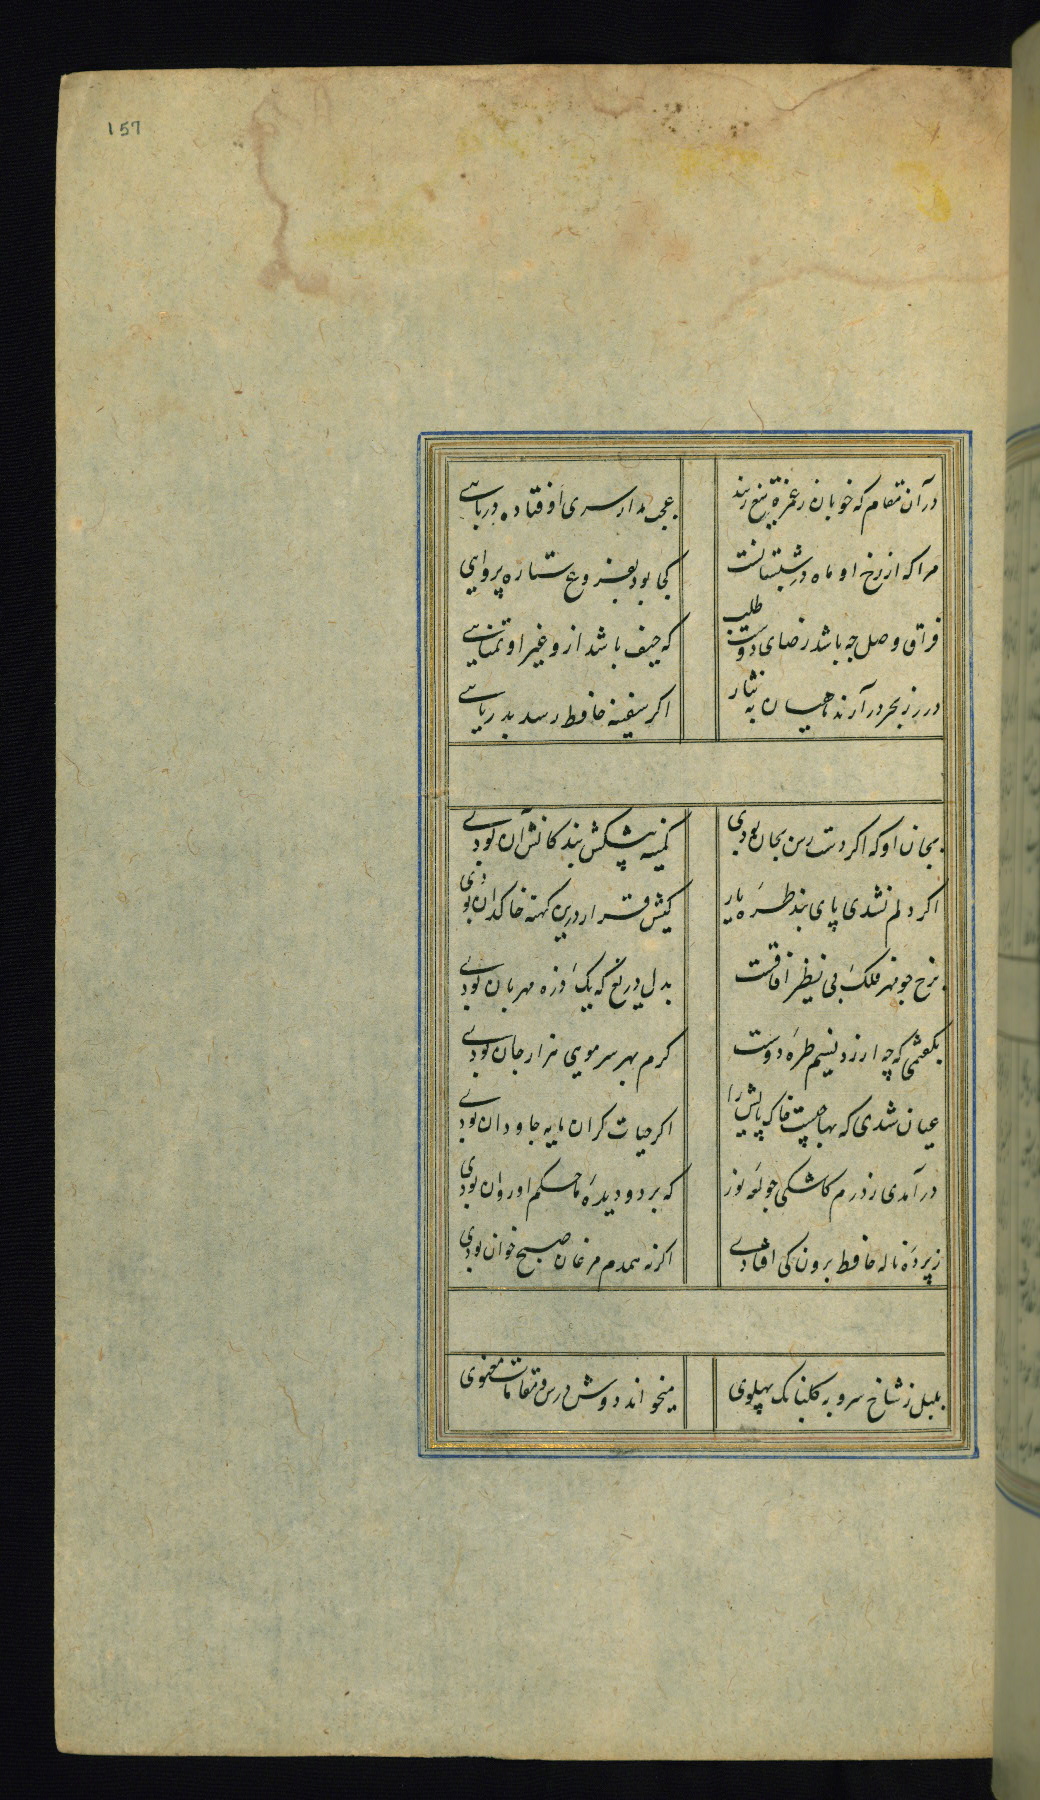 157
در آن مقام که خوبان زغمزه تیغ زنند عجب مدار سری اوفتاده در پایی
مرا که از رخ او ماه در شبستانست کجا بود بفروغ ستاره پروایی
فراق و وصل چه باشد رضای دوست طلب که حیف باشد ازو غیر او تمنایی
درر ز بحر در آرند ماهیان به نثار اکر سفینه حافظ رسد بدریایی
بجان او که اکر دست رس بجان بودی کمینه پیشکش بندکانش آن بودی
اکر دلم نشدی پای بند طره یار کیش قرار درین کهنه خاکدان بودی
برخ چو مهر فلک بی نظیر آفاقست بدل دریغ که یک ذره مهربان بودی
بکفتمی که چه ارزد نسیم طره دوست کرم بهر سر مویی هزار جان بودی
عیان شدی که بها چیست خاک پایش را اکر حیات کران مایه جاودان بودی
در آمدی ز درم کاشکی چو لمعه نور که بر دو دیده ما حکم او روان بودی
ز پرده ناله حافظ برون کی افتادی اکر نه همدم مرغان صبح خوان بودی
بلبل ز شاخ سرو به کلبانک پهلوی میخواند دوش درس مقامات معنوی